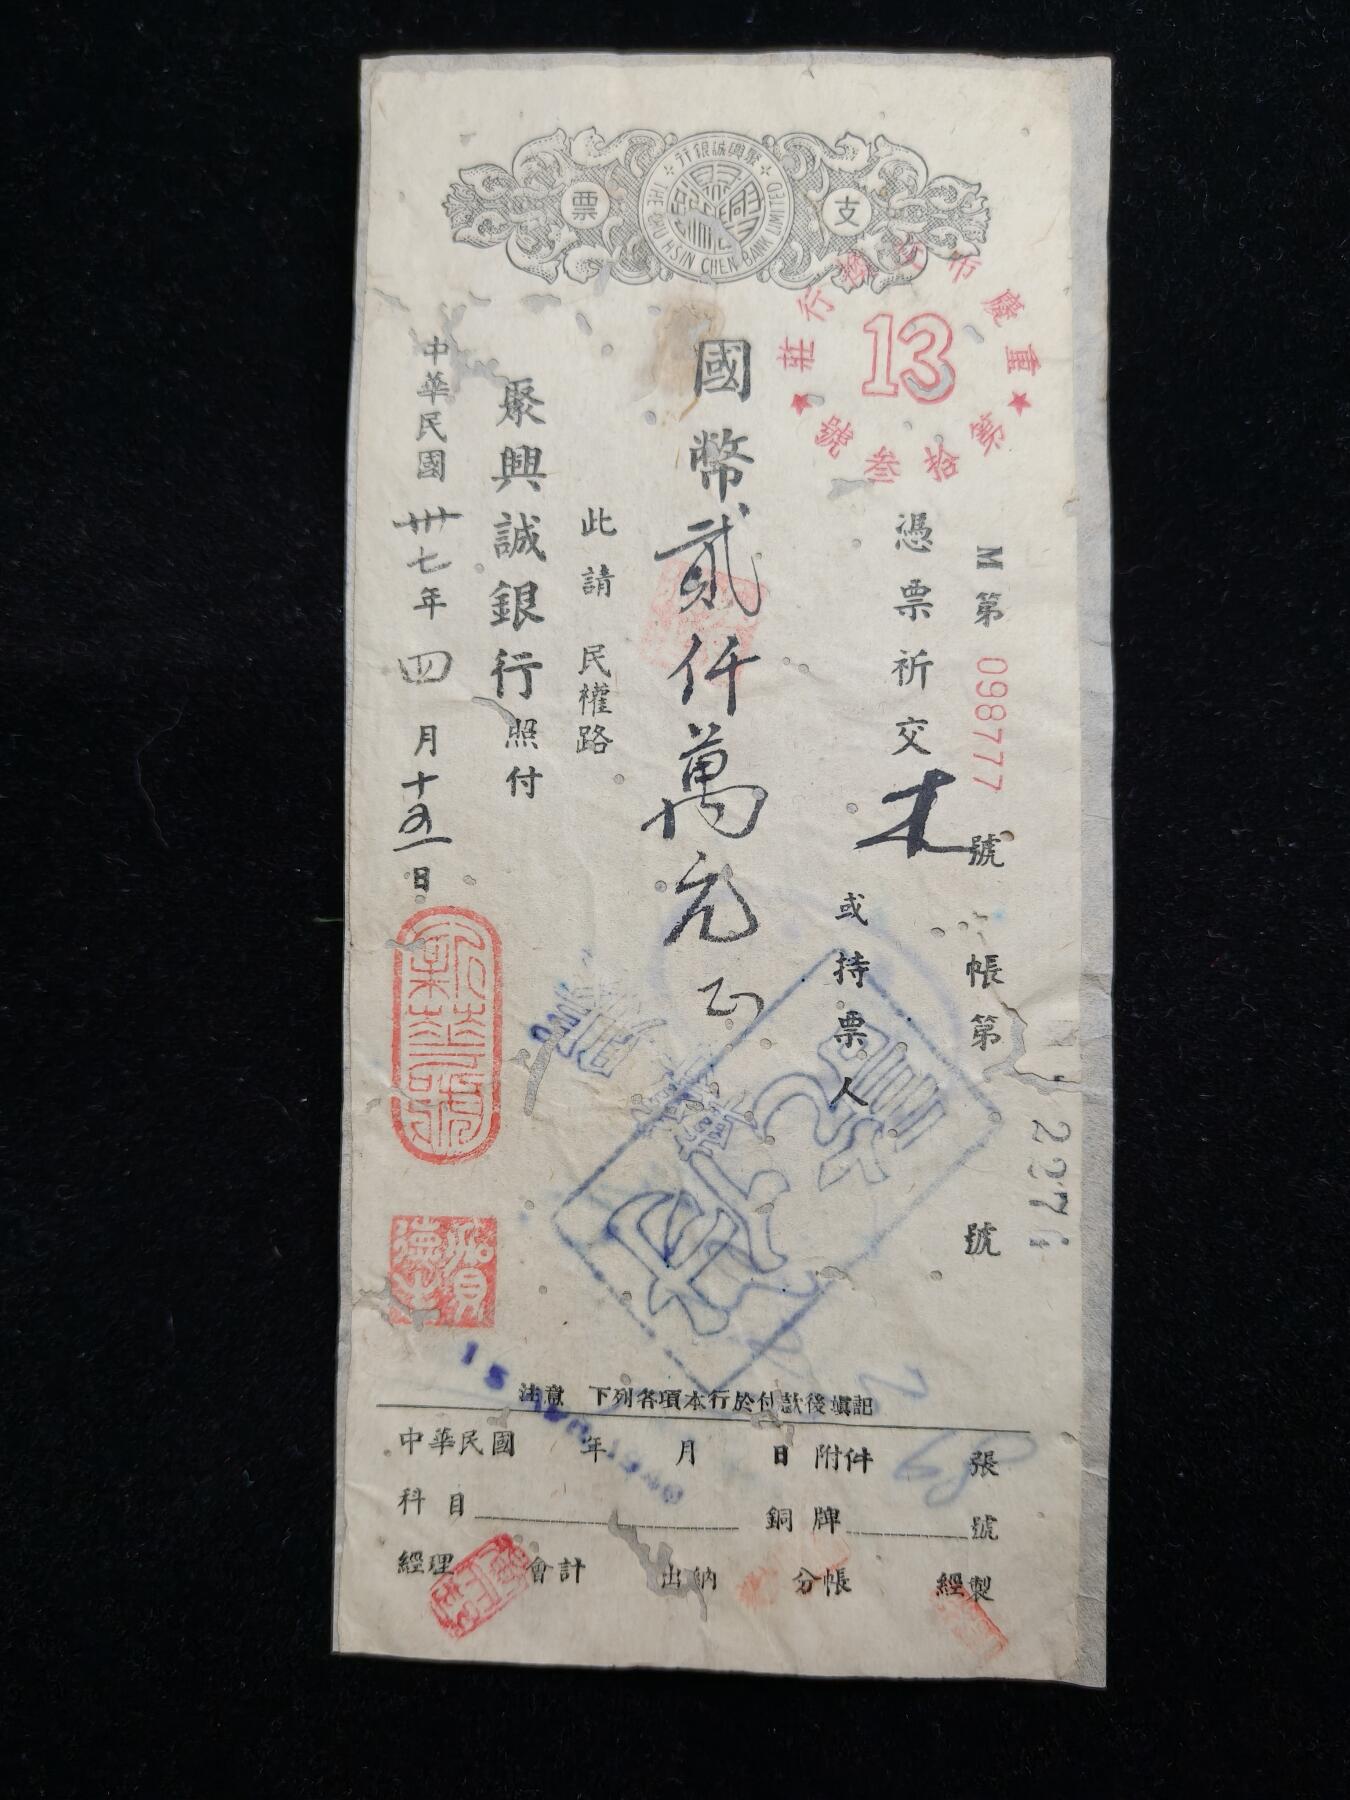 聚興誠銀行
THE CHU HSIN CHEN BANK LIMITED
支票
重慶市 行莊
13
第拾叁號
M第098777號 帳第 號
憑票祈交 或持票人
國幣貳仟萬元正
此請 民權路
聚興誠銀行照付
中華民國卅七年四月十五日
新華號
注意 下列各項本行於付款後填記
中華民國 年 月 日 附件 張
科目 銅牌 號
經理 會計 出納 分帳 經製